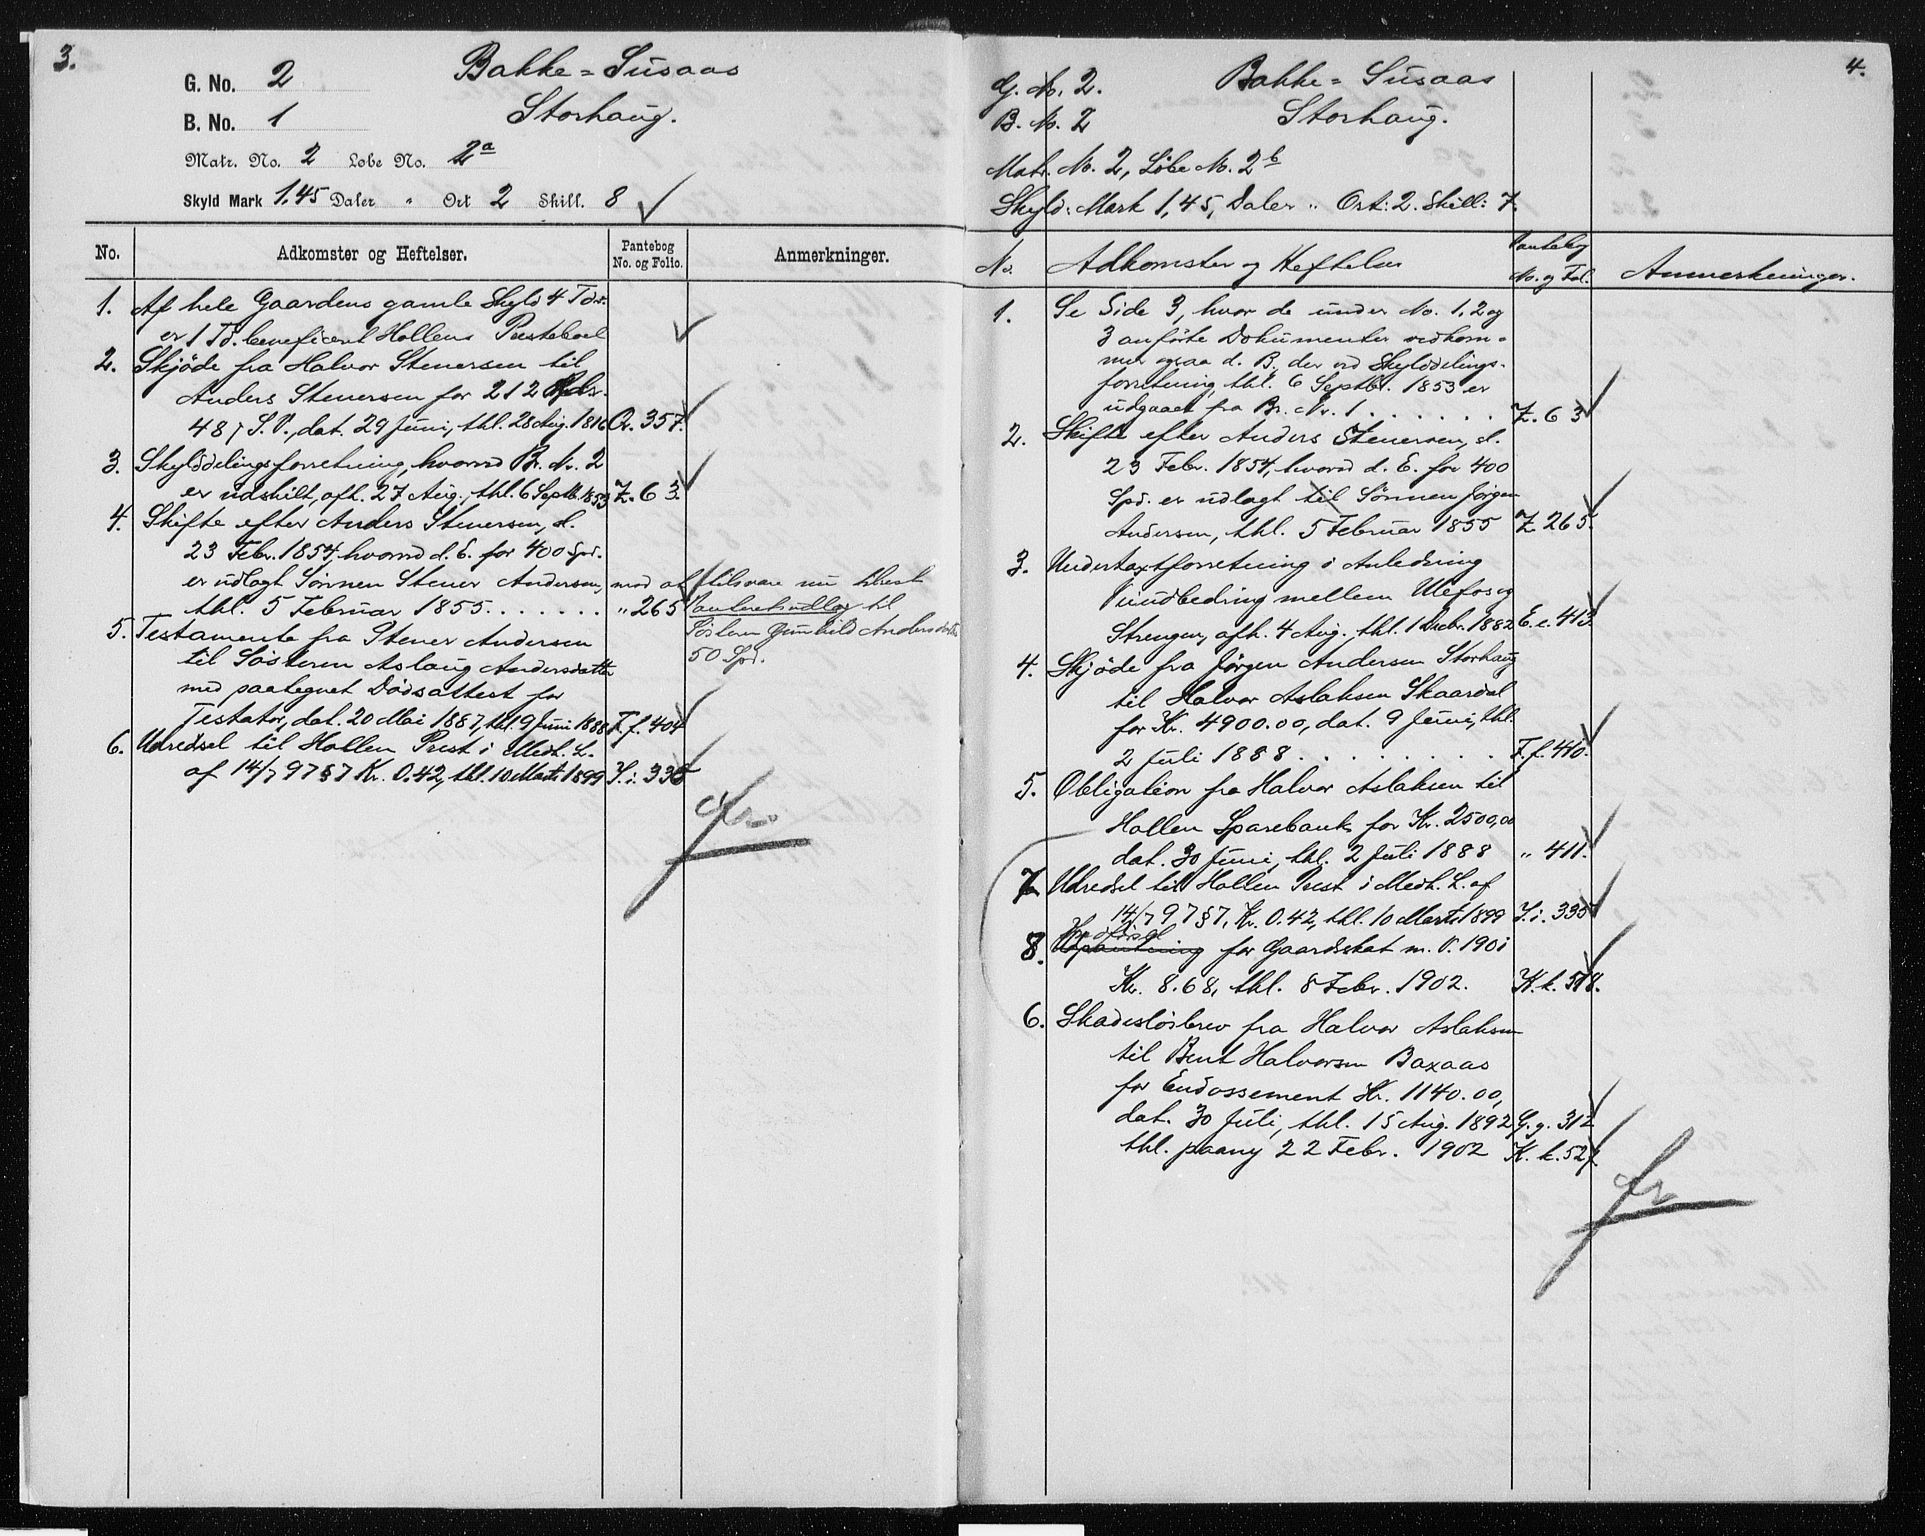 3.
G. No. 2
Bakke = Susaas
B. No. 1
Storhaug.
Matr. No. 2 Løbe No. 2a
Skyld Mark 1.45 Daler " Ort 2 Skill. 8
No.
Adkomster og Heftelser.
Pantebog
No. og Folio.
Anmerkninger.
1. Af hele Gaardens gamle Skyld 4 Tdr.
er 1 Td. beneficeret Hollens Prestebol
2. Skjöde fra Halvor Stenersen til
Anders Stenersen for 212 Rdlr.
48 / S.V., dat. 29 Juni, thl. 28 Aug. 1816 Q. 357.
3. Skylddelingsforretning, hvorved Br. Nr. 2
er udskilt, afh. 27 Aug., thl. 6 Septb. 1853 Z. 63.
4. Skifte efter Anders Stenersen, d.
23 Febr. 1854, hvorved d. E. for 400 Spd.
er udlagt Sönnen Stener Andersen, mod at tilsvare
thl. 5 Februar 1855. . . . . . . " 265 Panteretsudlæg til
Söstern Gunhild Andersdatter
50 Spd.
5. Testamente fra Stener Andersen
til Søsteren Aslaug Andersdatter
med paategnet Dödsattest for
Testator, dat. 20 Mai 1887, thl. 9 Juni 1888 F.f. 404
6. Udredsel til Hollen Prest i Medh. L.
af 14/7 97 § 7 Kr. 0.42, thl. 10 Marts 1899 I.i. 335
4.
G. No. 2.
Bakke = Susaas
B. No. 2
Storhaug.
Matr. No. 2, Löbe No. 2b
Skyld: Mark 1,45, Daler " Ort: 2. Skill: 7.
No.
Adkomster og Heftelser
Pantebog
No. og Fol.
Anmerkninger.
1. Se Side 3, hvor de under No. 1, 2 og
3 anförte Dokumenter vedkom-
mer ogsaa d. B., der ved Skylddelings-
forretning, thl. 6 Septbr. 1853 er
udgaaet fra Br. Nr. 1 . . . . . . . Z. 63
2. Skifte efter Anders Stenersen, d.
23 Febr. 1854, hvorved d. E. for 400
Spd. er udlagt til Sönnen Jörgen
Andersen, thl. 5 Februar 1855 Z 265.
3. Undertaxtforretning i Anledning
Vundbedring mellem Ulefos og
Strengen, afh. 4 Aug., thl. 1 Decbr. 1882 E.e. 413
4. Skjöde fra Jörgen Andersen Storhaug
til Halvor Aslaksen Skaardal
for Kr. 4900.00, dat. 9 Juni, thl.
2 Juli 1888 . . . . . . . . . F.f. 410.
5. Obligation fra Halvor Aslaksen til
Hollen Sparebank for Kr. 2500,00
dat. 30 Juni, thl. 2 Juli 1888 " 411.
7. Udredsel til Hollen Prest i Medh. L. af
14/7 97 § 7, Kr. 0.42, thl. 10 Marts 1899 I.i. 335
8. Udpantning for Gaardskat m. V. 1901
Kr. 8.68, thl. 8 Febr. 1902. K.k. 518.
6. Skadeslösbrev fra Halvor Aslaksen
til Bent Halvorsen Baxaas
for Endossement Kr. 1140.00,
dat. 30 Juli, thl. 15 Aug. 1892 G.g. 312
thl. paany 22 Febr. 1902 K.k. 527.